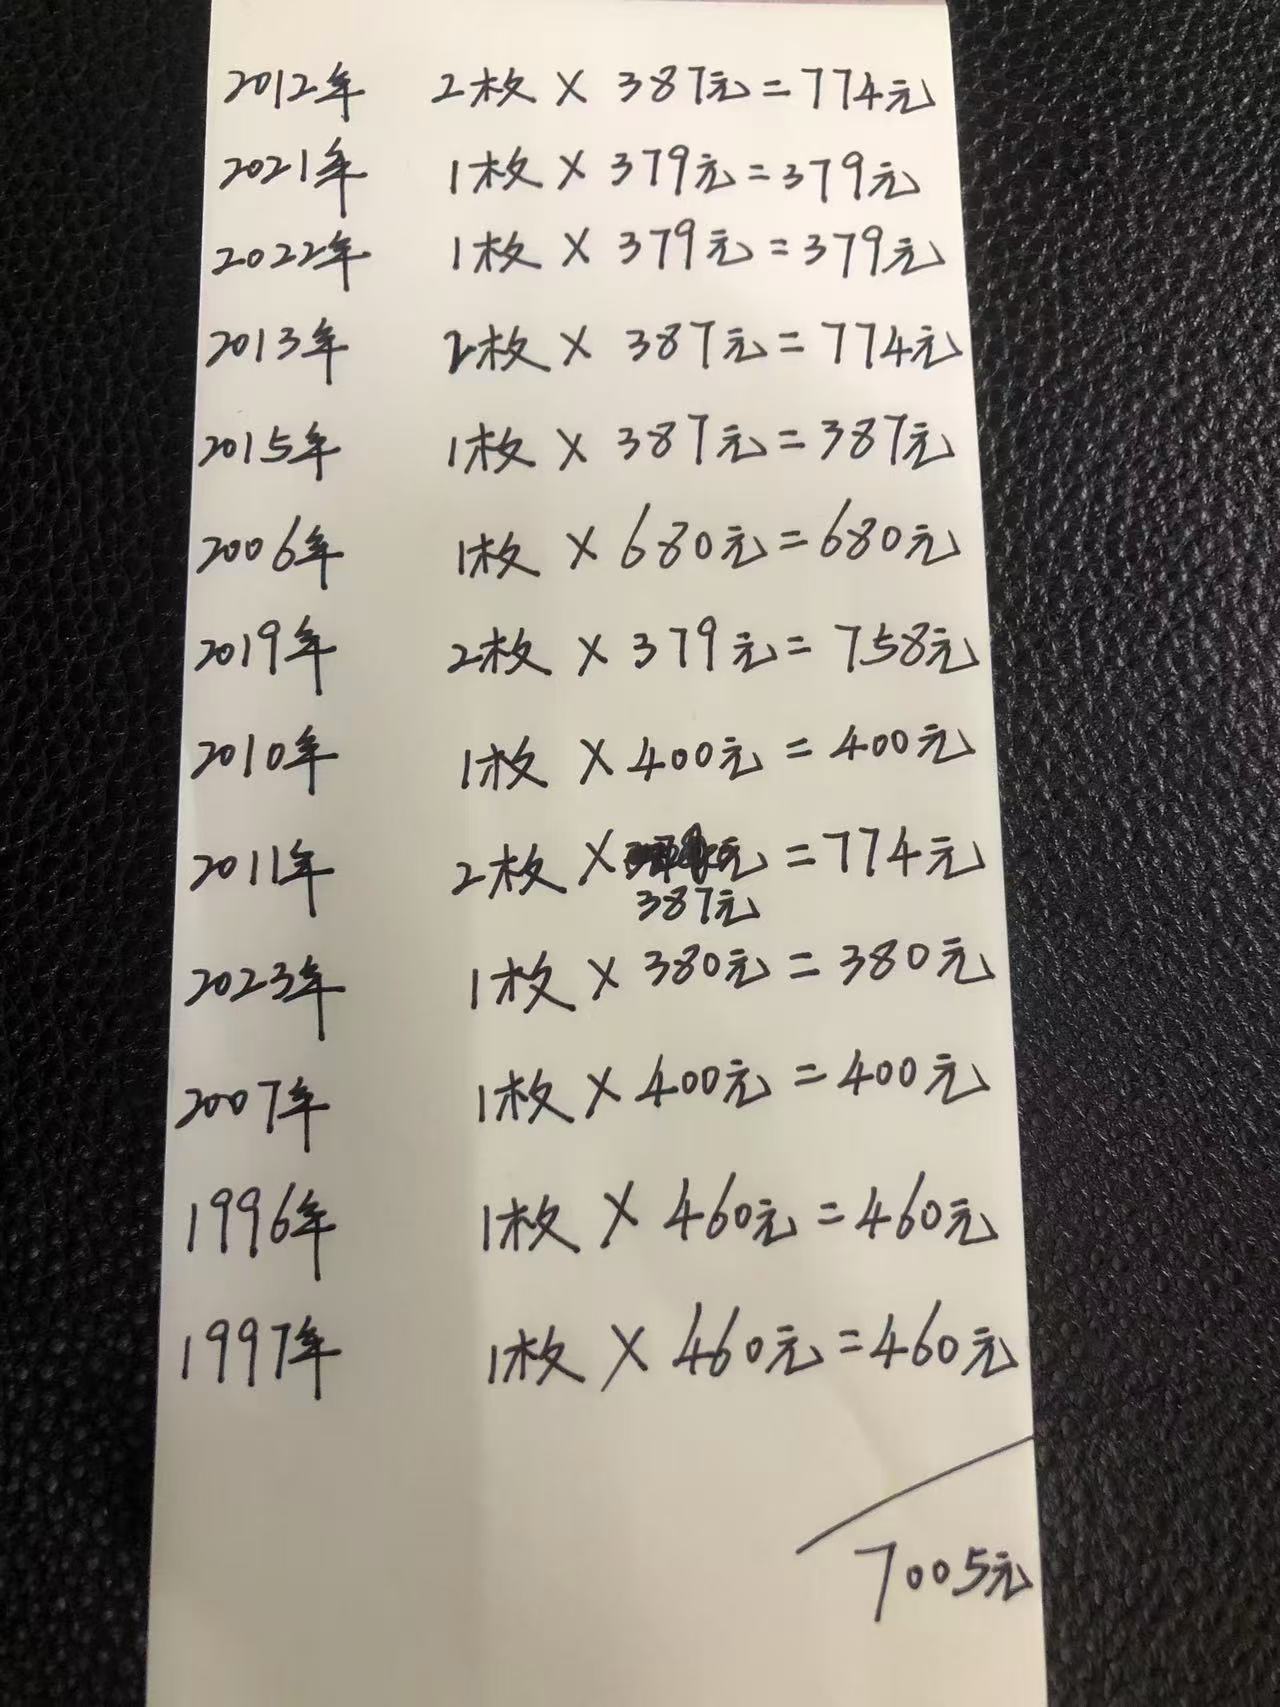 2012年 2枚 × 387元 = 774元
2021年 1枚 × 379元 = 379元
2022年 1枚 × 379元 = 379元
2013年 2枚 × 387元 = 774元
2015年 1枚 × 387元 = 387元
2006年 1枚 × 680元 = 680元
2019年 2枚 × 379元 = 758元
2010年 1枚 × 400元 = 400元
2011年 2枚 × 元 = 774元
387元
2023年 1枚 × 380元 = 380元
2007年 1枚 × 400元 = 400元
1996年 1枚 × 460元 = 460元
1997年 1枚 × 460元 = 460元
7005元